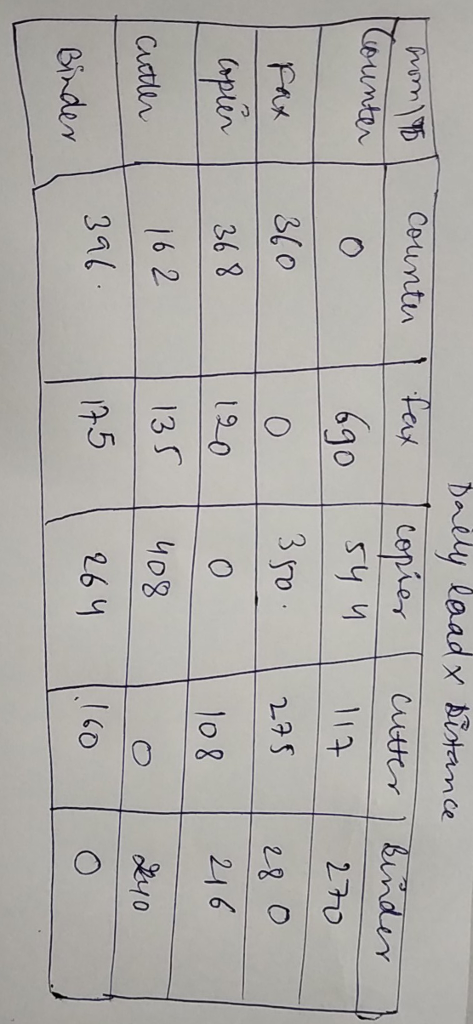 Daily load x Distance
from\To Counter Fax Copier Cutter Binder
Counter 0 690 544 117 270
Fax 360 0 350. 275 280
Copier 368 120 0 108 216
Cutter 162 135 408 0 240
Binder 396. 175 264 160 0